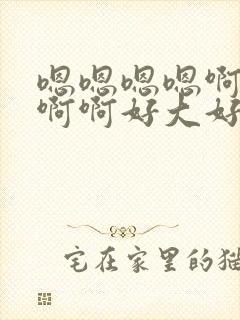 嗯嗯嗯嗯啊
啊啊好大好
宅在家里的猫